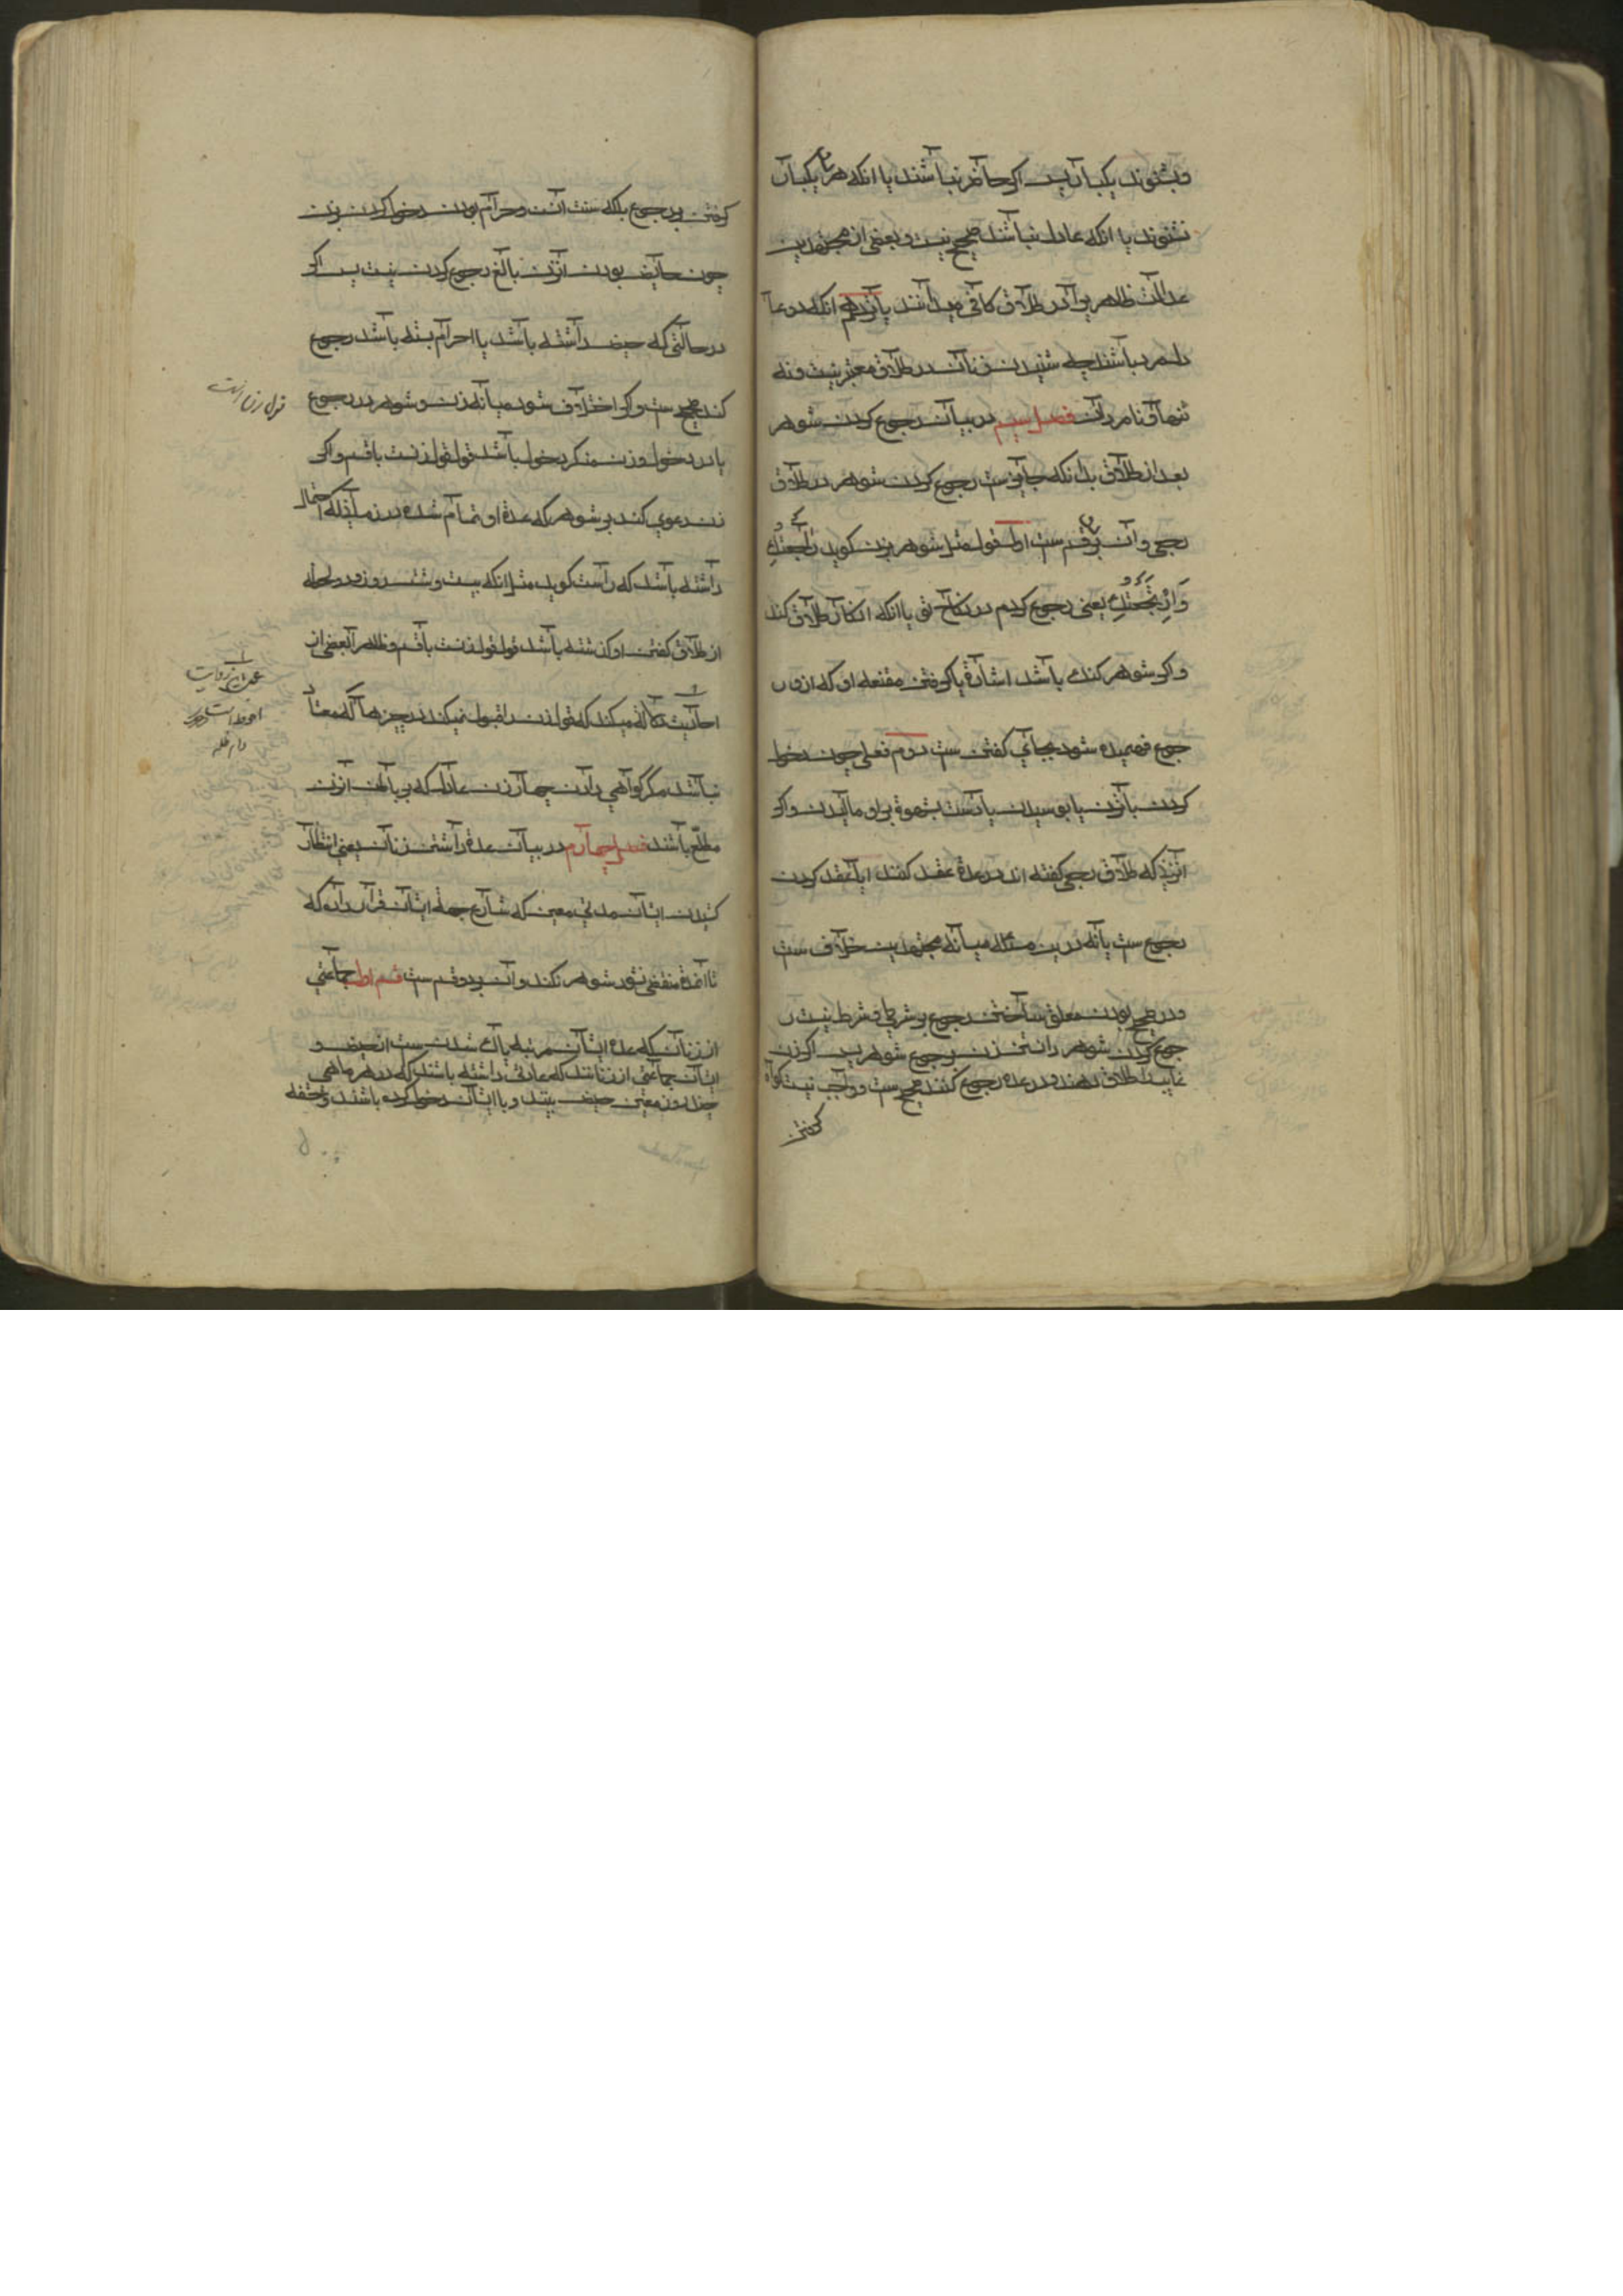 و بشنوند یکبار پس اگر حاضر نباشند یا آنکه هر دو یکبار
نشنوند یا انکه عادل نباشند صحیح نیست و بعضی از مجتهدین
عدالت ظاهر را در طلاق کافی میدانند یازدهم انکه دو عا
دل مرد باشند چه شنیدن زنان در طلاق معتبر نیست و نه
تنها و نه با مردان فصل سیم در بیان رجوع کردن شوهر
بعد از طلاق بدانکه جایز ست رجوع کردن شوهر در طلاق
رجعی و آن بر دو قسم ست اول قولی مثل شوهر بزن گوید راجعتك
وارتجعتك یعنی رجوع کردم در نکاح تو یا انکه انکار طلاق کند
و اگر شوهر گنگ باشد اشارة یا گرفتن مقنعه او که ازو ر
جوع فهمیده شود بجای گفتن ست دوم فعلی چون دخول
کردن با زن یا بوسیدن یا دست بشهوة برو مالیدن و اگر
آنزن که طلاق رجعی گفته اند در عدة عقد کنند ایا عقد کردن
رجوع ست یا نه درین مسئله میانه مجتهدین خلاف ست
و در صحیح بودن معلق ساختن رجوع بشرطی و شرط نیست ر
جوع کردن شوهر دانستن زن رجوع شوهر پس اگر زن
غایب را طلاق دهند و در عده رجوع کنند صحیح ست و واجب نیست گواه
گرفتن
گرفتن بر رجوع بلکه سنت است و حرام بودن دخول کردن بزن
چون حایض بودن آنزن مانع رجوع کردن نیست پس اگر
در حالتی که حیض داشته باشد یا احرام بسته باشد رجوع
کند صحیح ست و اگر اختلاف شود میانه زن و شوهر در رجوع
یا در دخول و زن منکر دخول باشد قول قول زنست با قسم و اگر
زن دعوی کند بر شوهر که عدة او تمام شده در زمانیکه احتمال
داشته باشد که راست گوید مثل انکه بیست و شش روز و دو لحظه
از طلاق گفتن او گذشته باشد قول قول زنست با قسم و ظاهر بعضی از
احادیث دلالة میکند که قول زن را قبول نمیکنند در چیزها که معتاد
نباشد مگر گواهی دادن چهار زن عادل که بر باطن آنزن
مطلع باشند فصل چهارم در بیان عدة داشتن زنان یعنی انتظار
کشیدن ایشان مدتی معین که شارع جهة ایشان قرار داده که
تا آنمدة منقضی نشود شوهر نکند و آن بر دو قسم ست قسم اول جماعتی
از زنان که عدة ایشان سه مرتبه پاک شدن ست از حیض و
ایشان جماعتی از زنانند که عادتی داشته باشند که در هر ماهی
چند روز معین حیض بینند و با ایشان دخول کرده باشند و حشفه
قول زن است